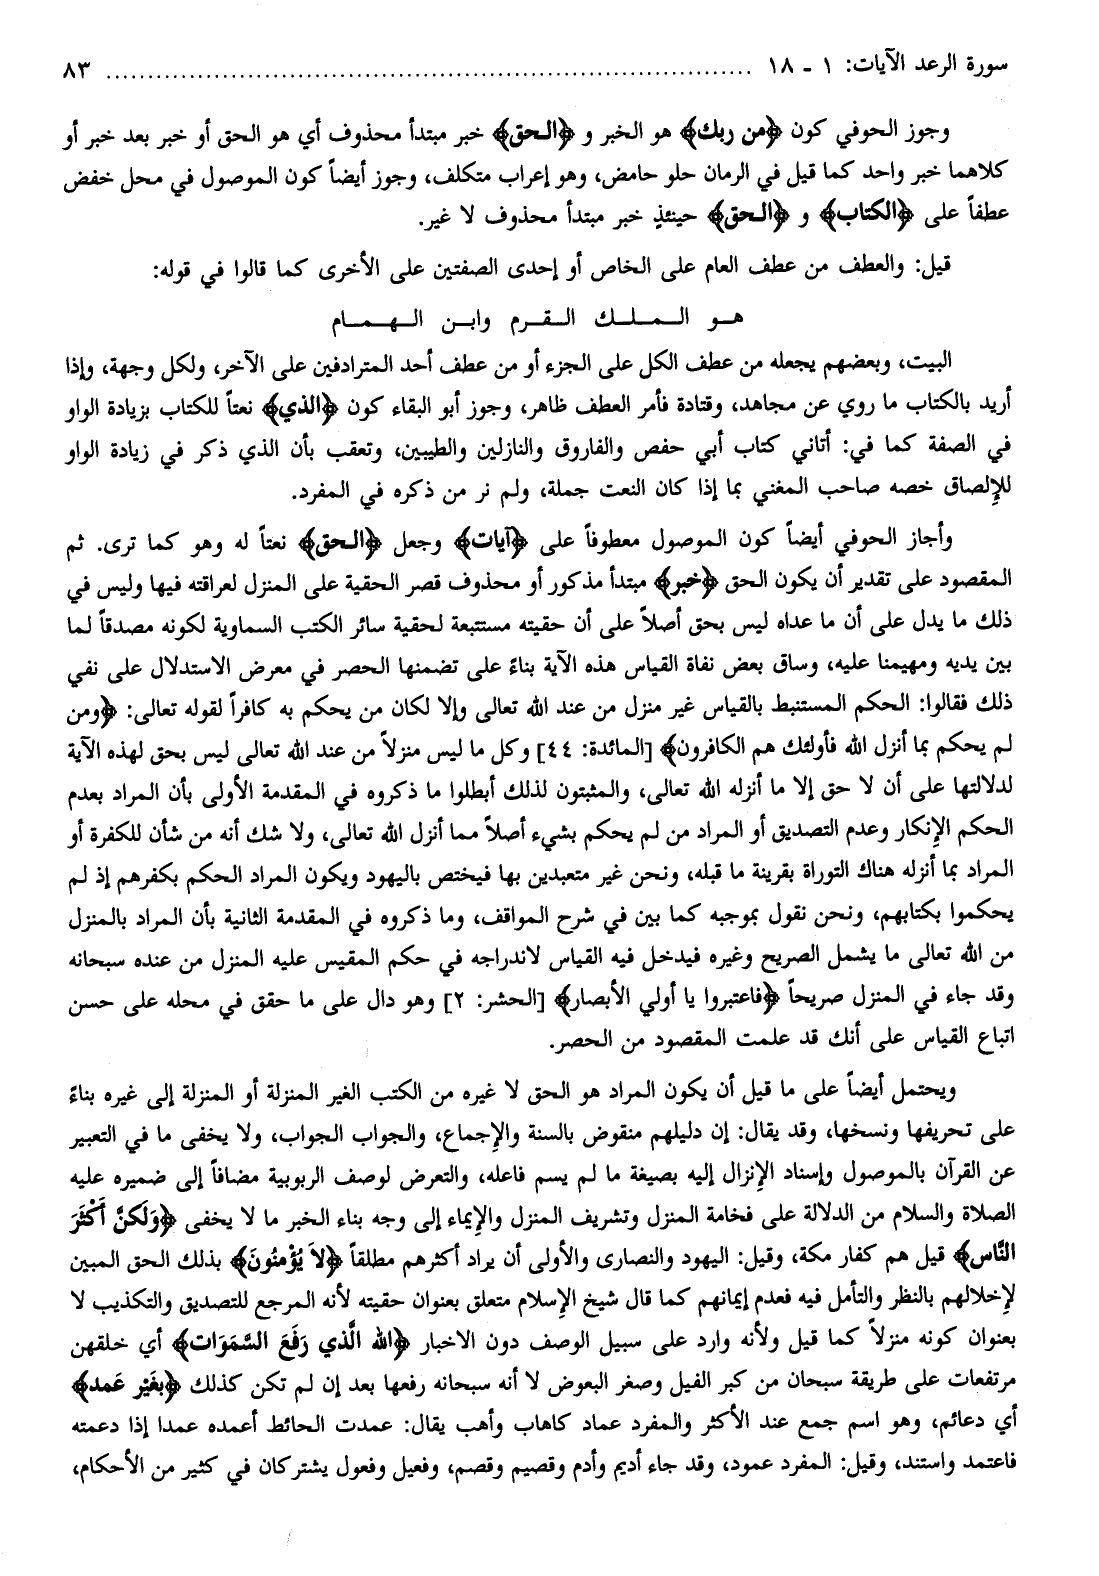 سورة الرعد الآيات: ١ - ١٨ ........................................................................... ٨٣
وجوز الحوفي كون ﴿من ربك﴾ هو الخبر و ﴿الحق﴾ خبر مبتدأ محذوف أي هو الحق أو خبر بعد خبر أو
كلاهما خبر واحد كما قيل في الرمان حلو حامض، وهو إعراب متكلف، وجوز أيضاً كون الموصول في محل خفض
عطفاً على ﴿الكتاب﴾ و ﴿الحق﴾ حينئذٍ خبر مبتدأ محذوف لا غير.
قيل: والعطف من عطف العام على الخاص أو إحدى الصفتين على الأخرى كما قالوا في قوله:
هـو الـمـلـك الـقـرم وابـن الـهـمـام
البيت، وبعضهم يجعله من عطف الكل على الجزء أو من عطف أحد المترادفين على الآخر، ولكل وجهة، وإذا
أريد بالكتاب ما روي عن مجاهد، وقتادة فأمر العطف ظاهر، وجوز أبو البقاء كون ﴿الذي﴾ نعتاً للكتاب بزيادة الواو
في الصفة كما في: أتاني كتاب أبي حفص والفاروق والنازلين والطيبين، وتعقب بأن الذي ذكر في زيادة الواو
للإلصاق خصه صاحب المغني بما إذا كان النعت جملة، ولم نر من ذكره في المفرد.
وأجاز الحوفي أيضاً كون الموصول معطوفاً على ﴿آيات﴾ وجعل ﴿الحق﴾ نعتاً له وهو كما ترى. ثم
المقصود على تقدير أن يكون الحق ﴿خبر﴾ مبتدأ مذكور أو محذوف قصر الحقية على المنزل لعراقته فيها وليس في
ذلك ما يدل على أن ما عداه ليس بحق أصلاً على أن حقيته مستتبعة لحقية سائر الكتب السماوية لكونه مصدقاً لما
بين يديه ومهيمنا عليه، وساق بعض نفاة القياس هذه الآية بناءً على تضمنها الحصر في معرض الاستدلال على نفي
ذلك فقالوا: الحكم المستنبط بالقياس غير منزل من عند الله تعالى وإلا لكان من يحكم به كافراً لقوله تعالى: ﴿ومن
لم يحكم بما أنزل الله فأولئك هم الكافرون﴾ [المائدة: ٤٤] وكل ما ليس منزلاً من عند الله تعالى ليس بحق لهذه الآية
لدلالتها على أن لا حق إلا ما أنزله الله تعالى، والمثبتون لذلك أبطلوا ما ذكروه في المقدمة الأولى بأن المراد بعدم
الحكم الإنكار وعدم التصديق أو المراد من لم يحكم بشيء أصلاً مما أنزل الله تعالى، ولا شك أنه من شأن للكفرة أو
المراد بما أنزله هناك التوراة بقرينة ما قبله، ونحن غير متعبدين بها فيختص باليهود ويكون المراد الحكم بكفرهم إذ لم
يحكموا بكتابهم، ونحن نقول بموجبه كما بين في شرح المواقف، وما ذكروه في المقدمة الثانية بأن المراد بالمنزل
من الله تعالى ما يشمل الصريح وغيره فيدخل فيه القياس لاندراجه في حكم المقيس عليه المنزل من عنده سبحانه
وقد جاء في المنزل صريحاً ﴿فاعتبروا يا أولي الأبصار﴾ [الحشر: ٢] وهو دال على ما حقق في محله على حسن
اتباع القياس على أنك قد علمت المقصود من الحصر.
ويحتمل أيضاً على ما قيل أن يكون المراد هو الحق لا غيره من الكتب الغير المنزلة أو المنزلة إلى غيره بناءً
على تحريفها ونسخها، وقد يقال: إن دليلهم منقوض بالسنة والإجماع، والجواب الجواب، ولا يخفى ما في التعبير
عن القرآن بالموصول وإسناد الإنزال إليه بصيغة ما لم يسم فاعله، والتعرض لوصف الربوبية مضافاً إلى ضميره عليه
الصلاة والسلام من الدلالة على فخامة المنزل وتشريف المنزل والإيماء إلى وجه بناء الخبر ما لا يخفى ﴿وَلَكنَّ أَكْثَرَ
النَّاس﴾ قيل هم كفار مكة، وقيل: اليهود والنصارى والأولى أن يراد أكثرهم مطلقاً ﴿لاَ يُؤْمنُونَ﴾ بذلك الحق المبين
لإخلالهم بالنظر والتأمل فيه فعدم إيمانهم كما قال شيخ الإسلام متعلق بعنوان حقيته لأنه المرجع للتصديق والتكذيب لا
بعنوان كونه منزلاً كما قيل ولأنه وارد على سبيل الوصف دون الاخبار ﴿الله الَّذي رَفَعَ السَّمَوَات﴾ أي خلقهن
مرتفعات على طريقة سبحان من كبر الفيل وصغر البعوض لا أنه سبحانه رفعها بعد إن لم تكن كذلك ﴿بغَيْر عَمد﴾
أي دعائم، وهو اسم جمع عند الأكثر والمفرد عماد كاهاب وأهب يقال: عمدت الحائط أعمده عمدا إذا دعمته
فاعتمد واستند، وقيل: المفرد عمود، وقد جاء أديم وأدم وقصيم وقصم، وفعيل وفعول يشتركان في كثير من الأحكام،